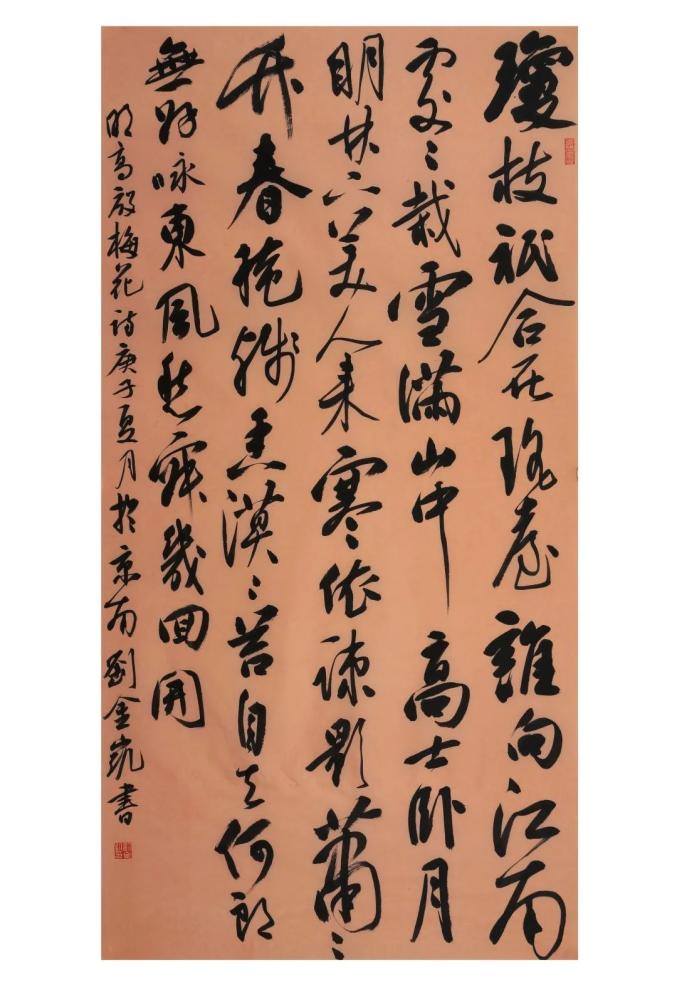 瓊枝祇合在瑤臺誰向江南
處〻栽雪滿山中高士卧月
明林下美人来寒依疎影蕭〻
竹春掩殘香漠〻苔自去何郎
無好咏東風愁寂幾回開
明高啟梅花詩庚子夏月於京南劉金凱書